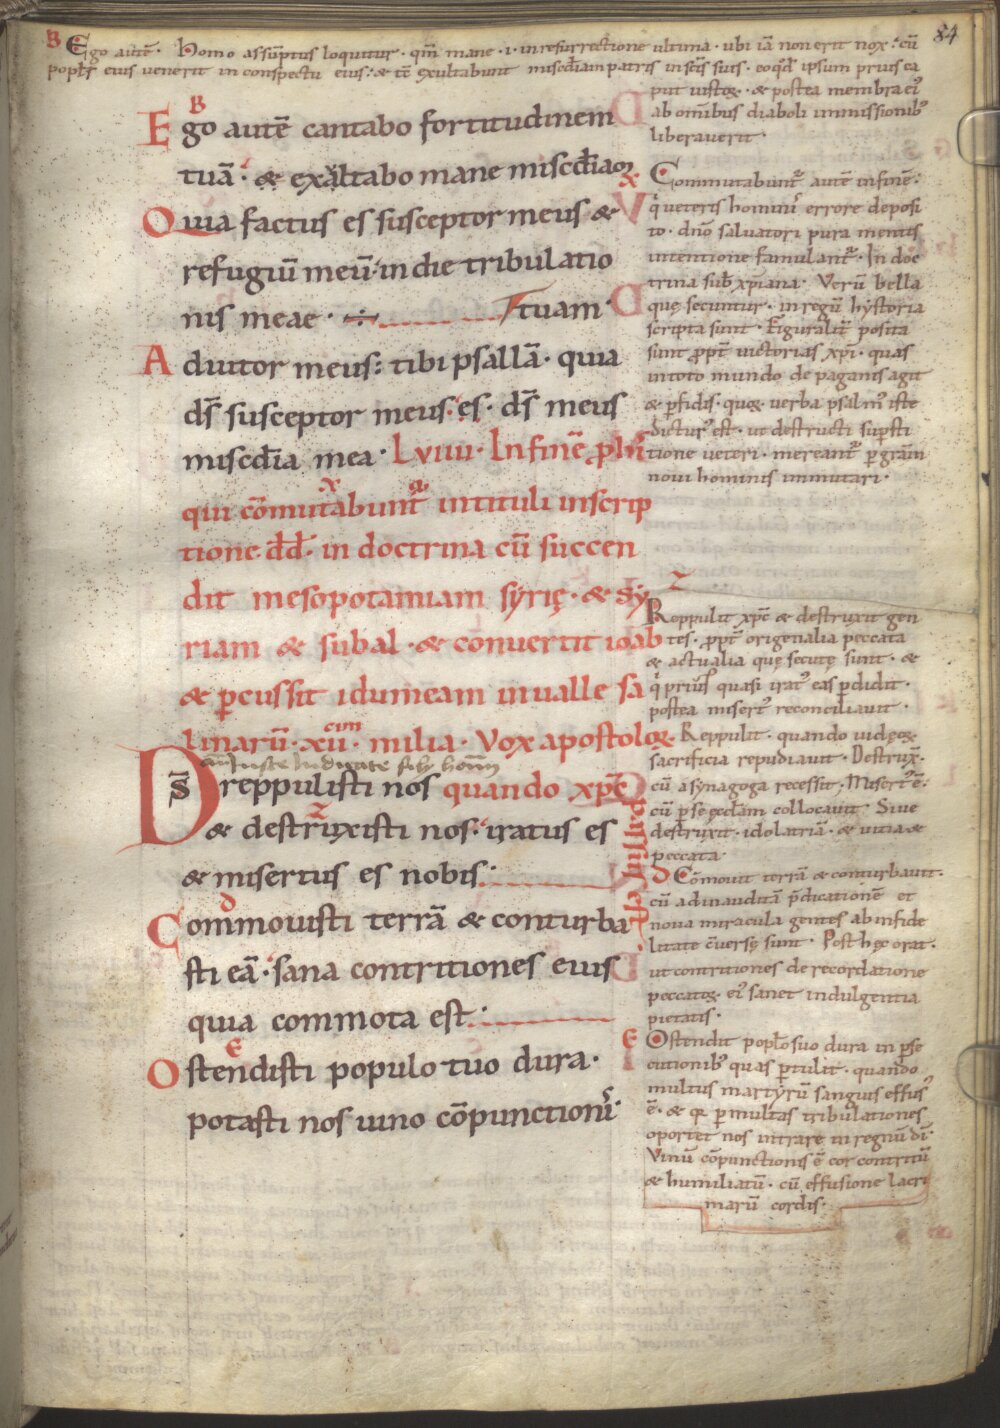 84
B Ego autē· Homo assūptus loquitur· qm̄ mane· i· in resurrectione ultima· ubi iā non erit nox: cū
popl̄s eius venerit in conspectu eius: & tc̄ exultabunt misc̄diam patris in sc̄is suis· eo qd̄ ipsum prius ca
put uisitq;· & postea membra ei᷒
ab omībus diaboli inmissionib᷒
liberauerit·
B
Ego autē cantabo fortitudinem
tuā· & exaltabo mane misc̄diā
Quia factus es susceptor meus &
refugiū meū· in die tribulatio
nis meae· ÷ tuam·
Adiutor meus: tibi psallā· quia
ds̄ susceptor meus es· ds̄ meus
misc̄dia mea· LVIIII· In finē
qui cōmutabunt᷑ in tituli inscrip
tione· dd̄· in doctrina cū succen
dit mesopotamiam syrię· & sy
riam & subal· & conuertit ioab
& p̄cussit idumeam in ualle sa
linarū· xii· milia· Vox apostoloꝝ
Ds̄ reppulisti nos quando xp̄c
& destruxisti nos: iratus es
& misertus es nobis:
Commouisti terrā & conturba
sti eā· sana contritiones eius
quia commota est:
Ostendisti populo tuo dura·
potasti nos uino cōpunctionis·
Commutabunt᷑ autē in finē·
q̇ ueteris hominis errore deposi
to· dn̄o saluatori pura mentis
intentione famulant᷑· In doc
trina sub xp̄iana· Verū bella
quę secuntur· in regū hystoria
scripta sunt· Figuralit̄ posita
sunt ꝓpt̄ uictorias xp̄i· quas
in toto mundo de paganis agit
& p̄fidis· quoq; uerba psalm᷒ iste
dictur᷒ est· ut destructi sup̄sti
tione ueteri· mereant᷑ p̄ gr̄am
noui hominis inmutari·
Z
Reppulit xp̄c & destruxit gen
tes· ꝓpt̄ origenalia peccata
& actualia quę secutę sunt· &
q̇ prius quasi irat᷒ eas p̄didit·
postea misert᷒ reconciliauit·
Reppulit· quando
sacrificia repudiauit· Destrux̄·
cū a synagoga recessit· Misert᷒ ē·
cū p̄ se ęcclam collocauit· Siue
destruxit· idolatriā· & uitia &
peccata
D Cōmouit terrā & conturbauit·
cū ad inauditā p̄dicationē et
noua miracula gentes ab infide
litate cūersę sunt· Post hęc orat·
ut contritiones de recordatione
peccatoꝝ· ei᷒ sanet indulgentia
pietatis·
E Ostendit popl̄o suo dura in p̄se
cutionib᷒ quas p̄tulit· quando
multus martyrū sanguis effus᷒
ē· & qa p̄ multas tribulationes
oportet nos intrare in regnū dī·
Vinū cōpunctionis ē cor contritū
& humiliatū· cū effusione lacri
marū cordis·